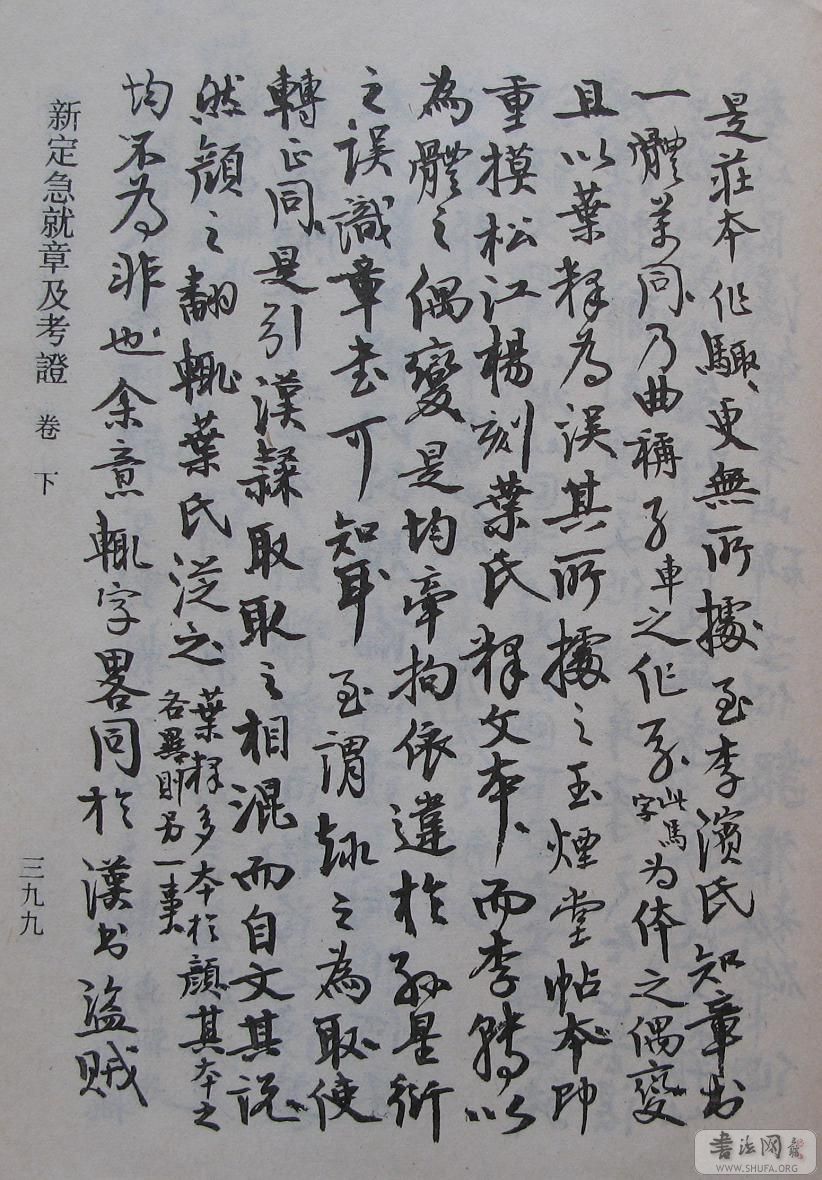 是莊本作驅、更無所據至李濱氏知章书
一體萬同乃曲稱子車之作子此馬字为体之偶變
且以葉釋為误其所據之玉煙堂帖本即
重摸松江楊刻葉氏釋文本而李轉以
為體之偶變是均牽拘依違於孫星衍
之误識章书可知耳至謂之為取使
轉正同是引漢隸取取之相混而自文其说
然顔之翻輒葉氏从之葉釋多本於顔其本之
各異則另一事
均不為非也余意輒字畧同於漢书盜贼
新定急就章及考證 卷下
三九九
書法网
WWW.SHUFA.ORG